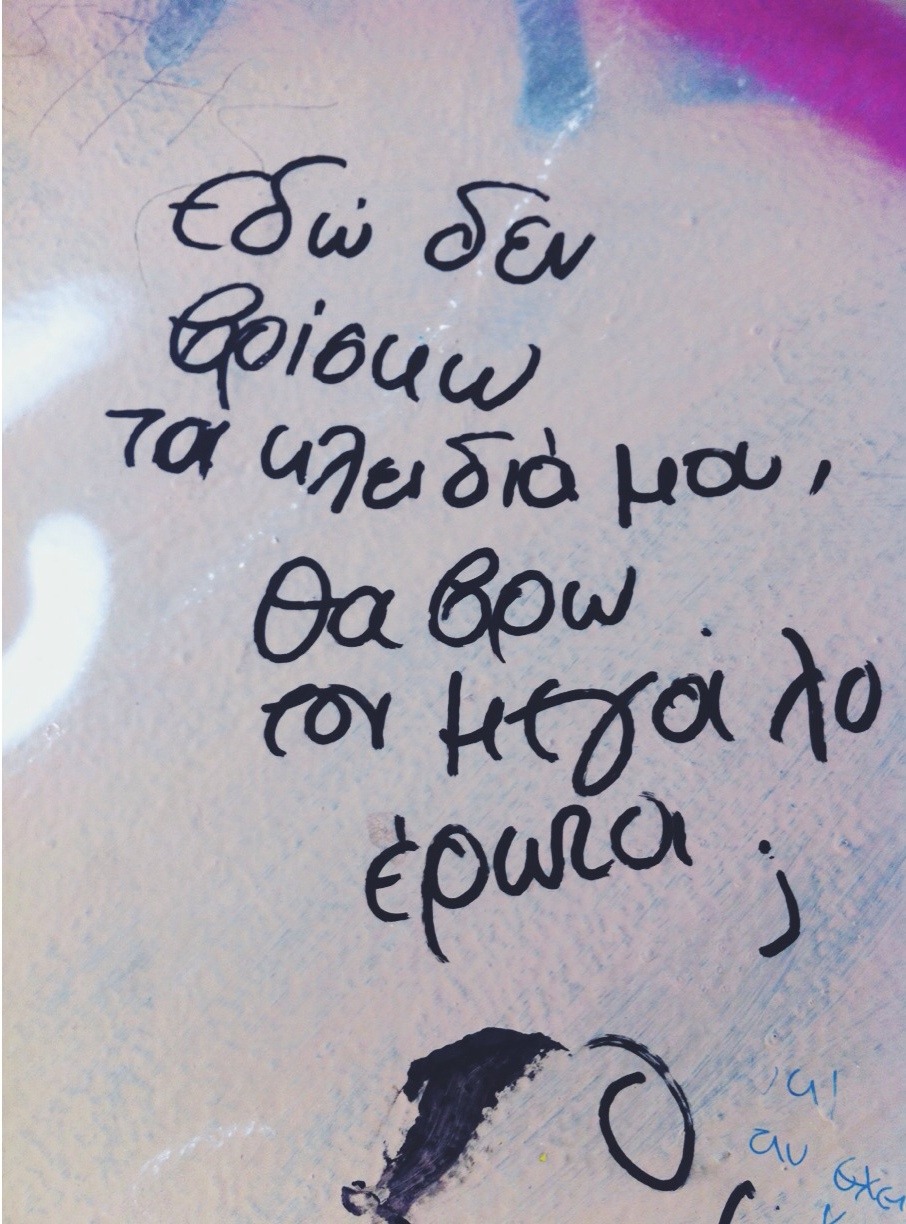 εδώ δεν
βρίσκω
τα κλειδιά μου,
θα βρω
τον μεγάλο
έρωτα;
αν